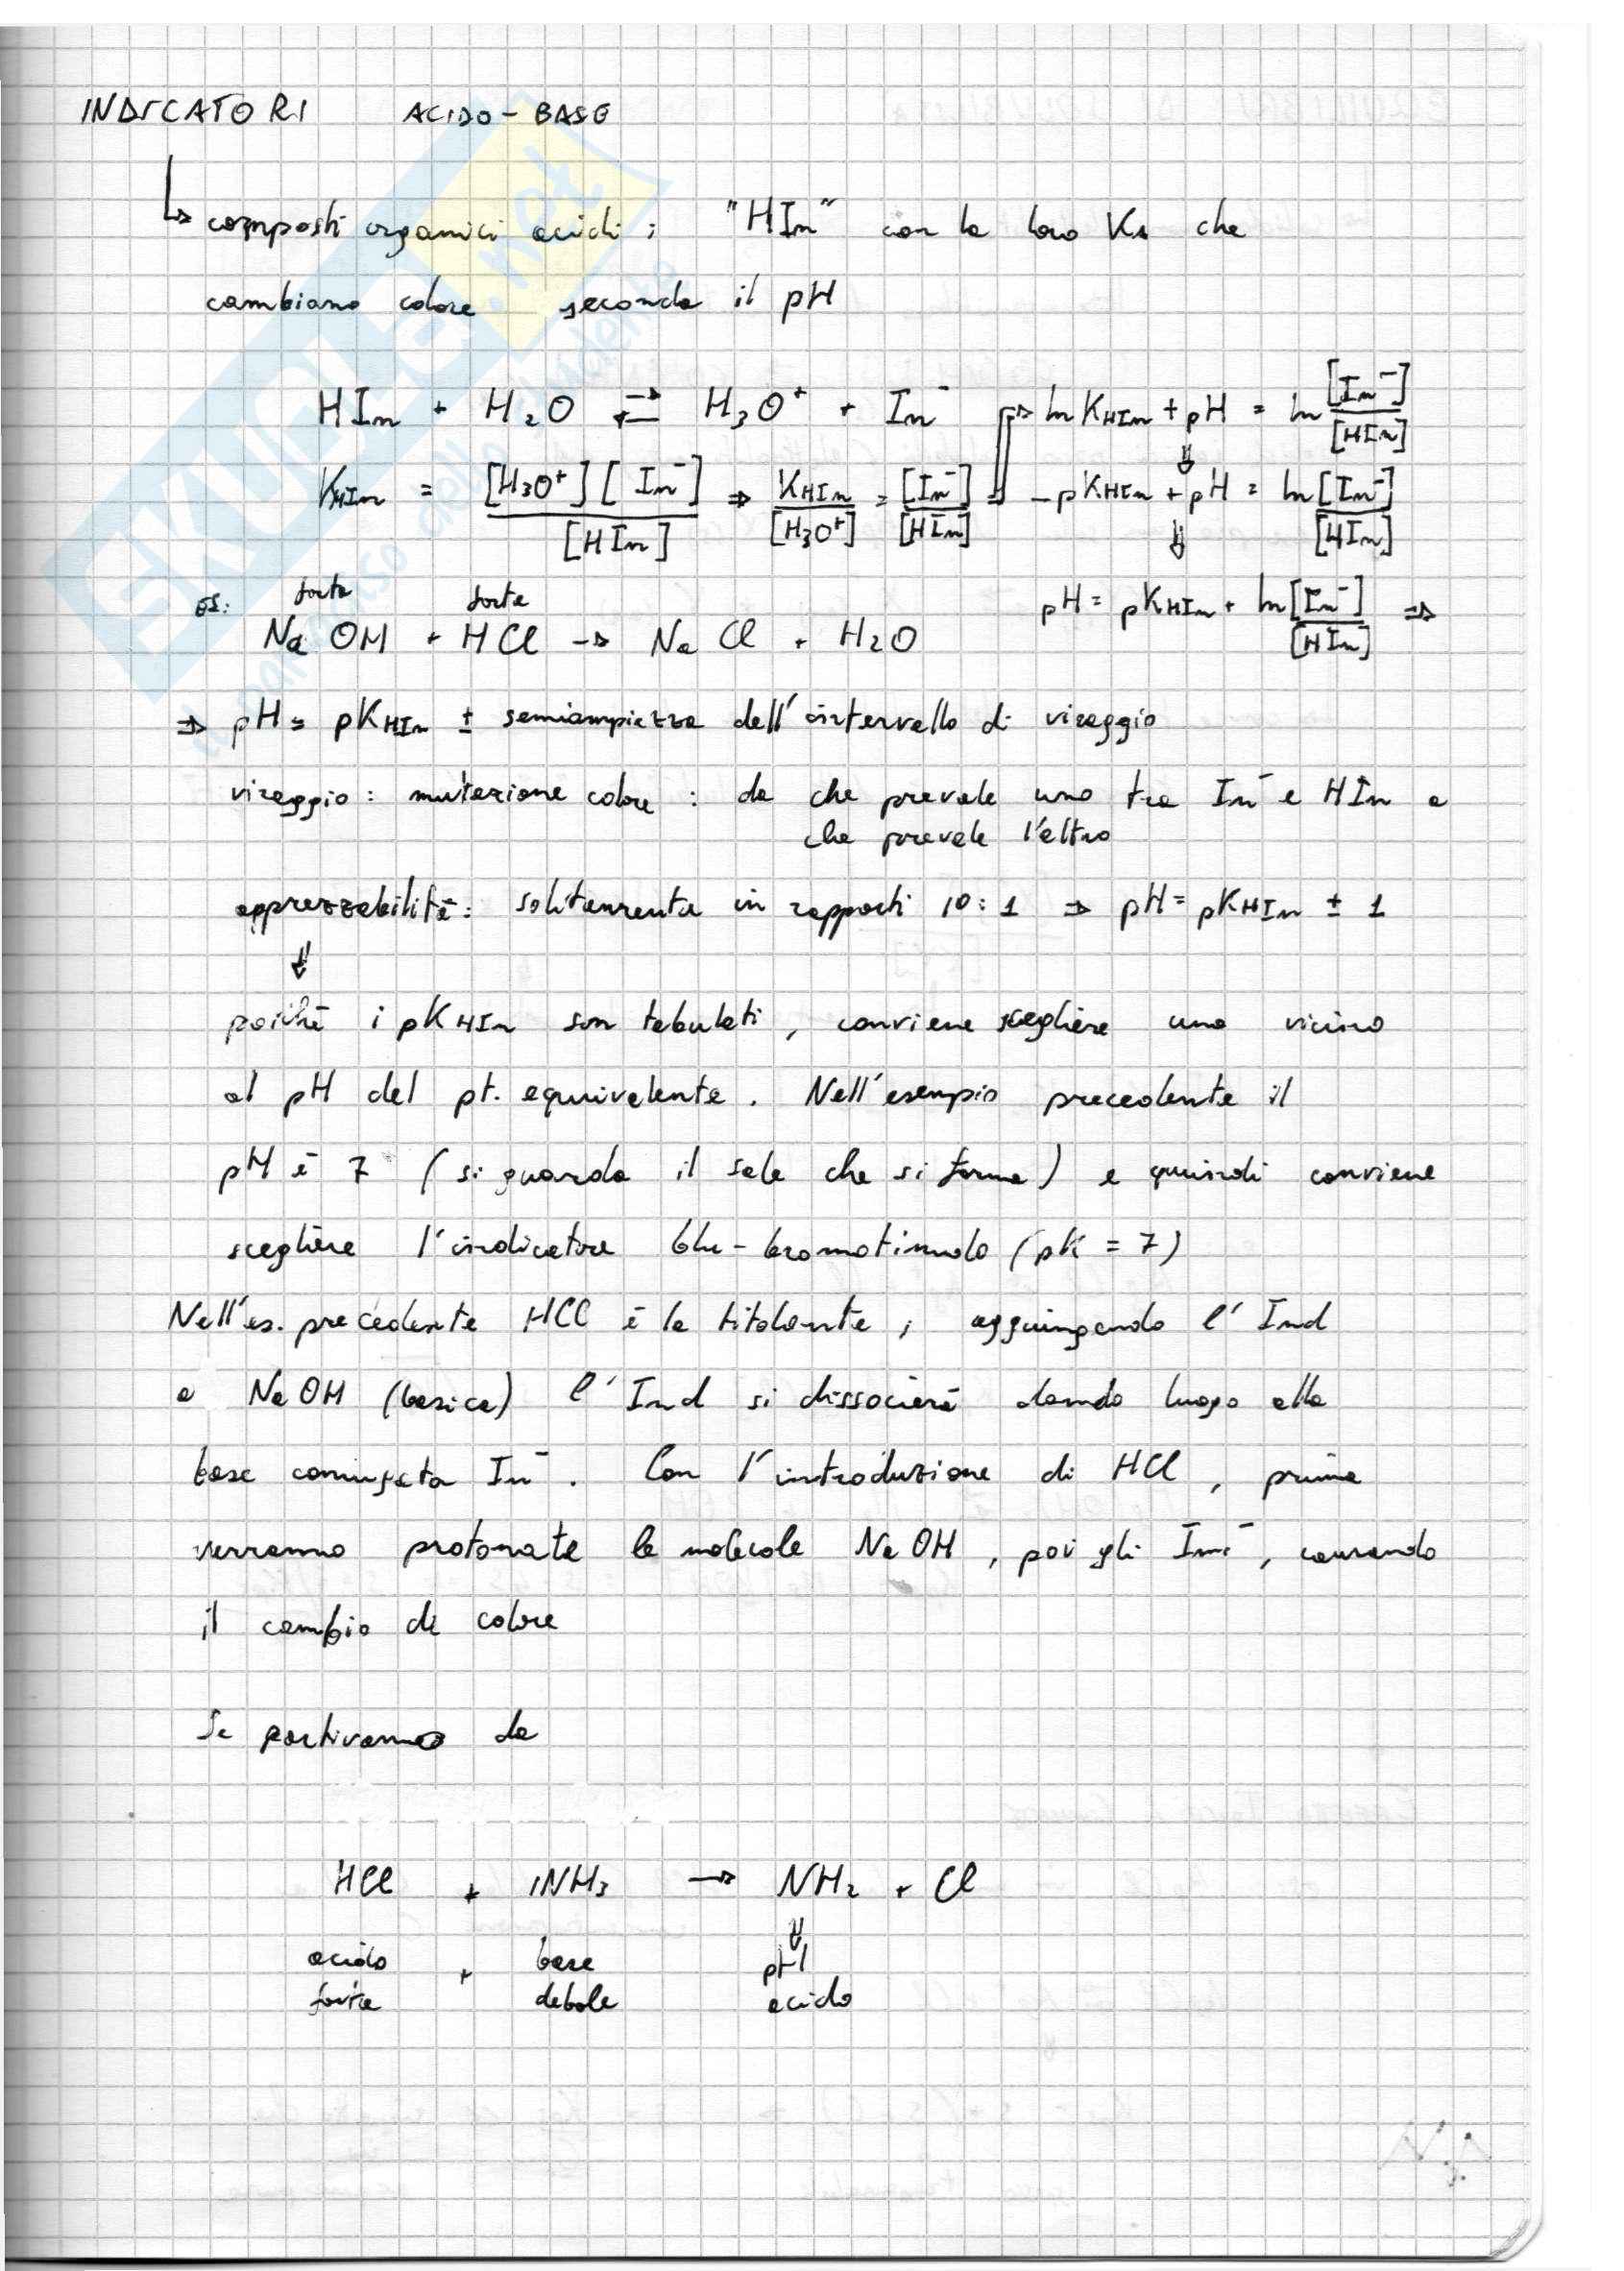 INDICATORI ACIDO-BASE
↳ composti organici acidi: "HIn" con la loro Ka che
cambiano colore secondo il pH
HIn + H2O ⇌ H3O+ + In- ⇒ ln KHIn + pH = ln [In-]/[HIn]
⇓
KHIn = [H3O+][In-]/[HIn] ⇒ KHIn/[H3O+] = [In-]/[HIn] ⇒ -pKHIn + pH = ln [In-]/[HIn]
⇓
es: forte forte
NaOH + HCl → NaCl + H2O pH = pKHIn + ln [In-]/[HIn] ⇒
⇒ pH = pKHIn ± semiampiezza dell'intervallo di viraggio
viraggio: mutazione colore: da che prevale uno tra In- e HIn a
che prevale l'altro
apprezzabilità: solitamente in rapporti 10:1 ⇒ pH = pKHIn ± 1
⇓
poiché i pKHIn son tabulati, conviene scegliere uno vicino
al pH del pt. equivalente. Nell'esempio precedente il
pH è 7 (si guarda il sale che si forma) e quindi conviene
scegliere l'indicatore blu-bromotimolo (pK = 7)
Nell'es. precedente HCl è la titolante, aggiungendo l'Ind
a NaOH (basica) l'Ind si dissocierà dando luogo alla
base coniugata In-. Con l'introduzione di HCl, prima
verranno protonate le molecole NaOH, poi gli In-, causando
il cambio di colore
Se partivamo da
HCl + NH3 → NH2 + Cl
⇓
acido + base pH
forte debole acido
EKUEL.net
il paradiso dello studente